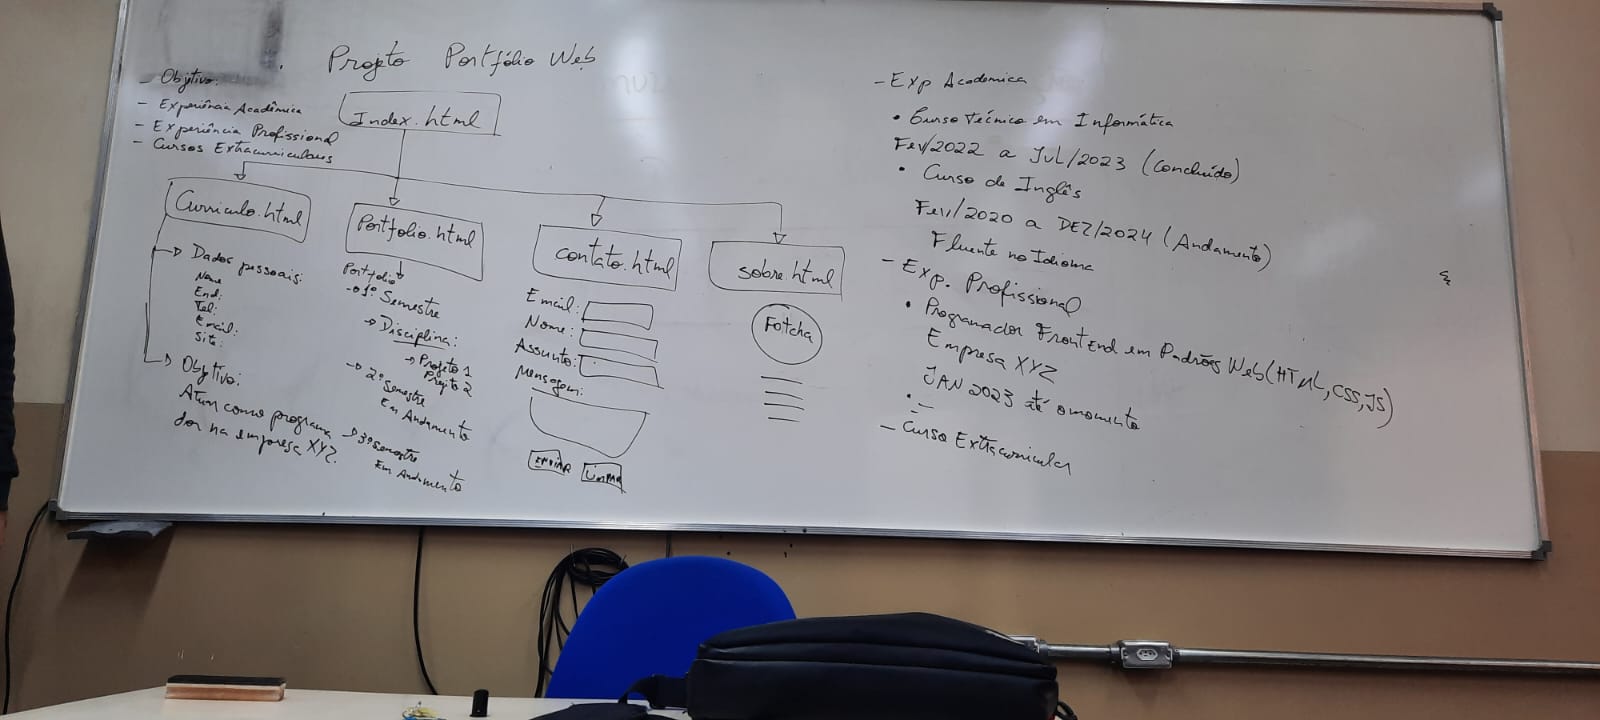 Projeto Portfólio Web
- Objetivo:
- Experiência Acadêmica
- Experiência Profissional
- Cursos Extracurriculares
Index.html
Curriculo.html
Dados pessoais:
Nome
End:
Tel:
Email:
Site:
Objetivo:
Atuar como programa
dor na empresa XYZ.
Portfolio.html
Portfolio
1º Semestre
Disciplina:
Projeto 1
Projeto 2
2º Semestre
Em Andamento
3º Semestre
Em Andamento
contato.html
Email:
Nome:
Assunto:
Mensagem:
ENVIAR LIMPAR
sobre.html
Fotcha
- Exp Academica
• Curso Técnico em Informática
Fev/2022 a JUL/2023 (Concluído)
• Curso de Inglês
Fev/2020 a DEZ/2024 (Andamento)
Fluente no Idioma
- Exp. Profissional
• Programador FrontEnd em Padrões Web (HTML, CSS, JS)
Empresa XYZ
JAN 2023 até o momento
- Curso Extracurricular